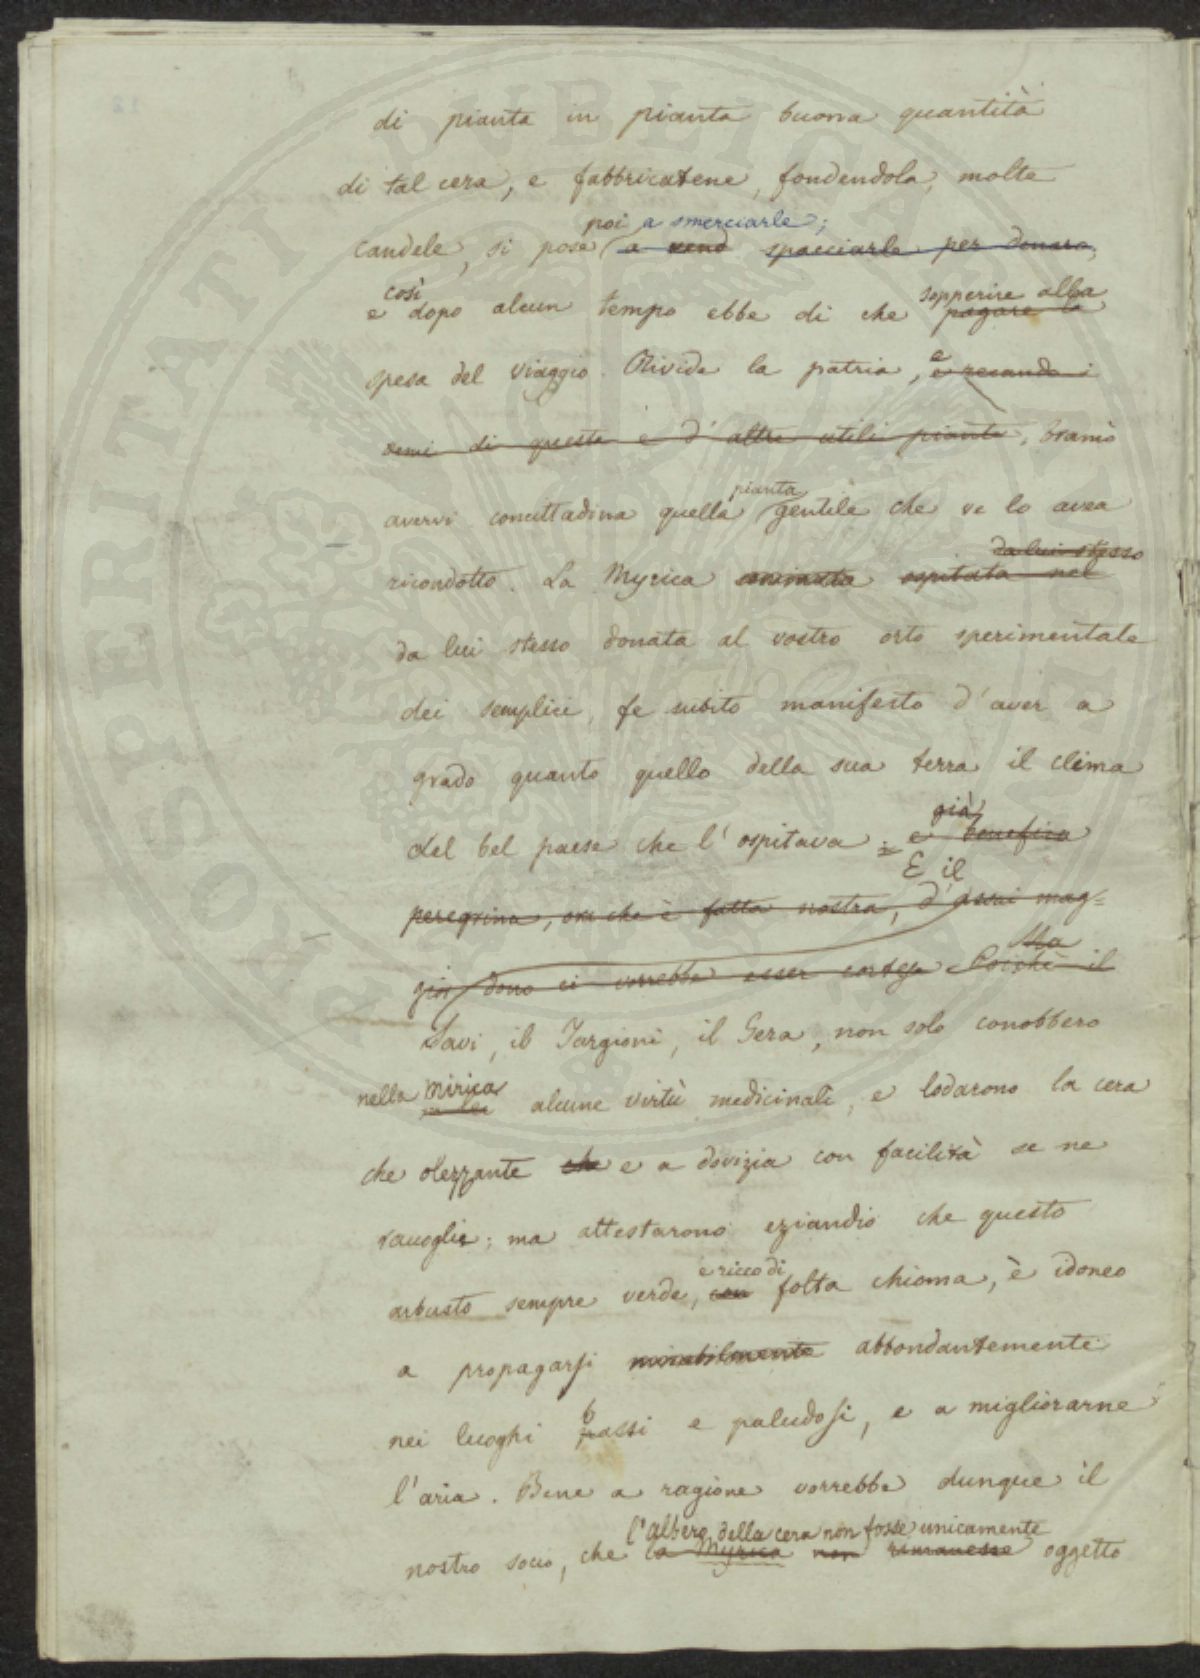 di pianta in pianta buona quantità
di tal cera, e fabbricatene, fondendola, molte
poi a smerciarle;
candele, si pose a vend spacciarle per denaro,
così sopperire alla
e dopo alcun tempo ebbe di che pagare la
spesa del viaggio. Rivide la patria, e e recando i
semi di queste e d'altre utili piante, bramò
pianta
avervi concittadina quella gentile che ve lo avea
da lui stesso
ricondotto. La Myrica ospitata nel
da lui stesso donata al vostro orto sperimentale
dei semplici, fe subito manifesto d'aver a
grado quanto quello della sua terra il clima
già
del bel paese che l'ospitava: e benefica
E il
peregrina, ora che è fatta nostra, d'assai mag=
Ma
gior dono ci vorrebbe esser cortese Poichè il
Savi, il Targioni, il Gera, non solo conobbero
Mirica
nella in lei alcune virtù medicinali, e lodarono la cera
che olezzante che e a dovizia con facilità se ne
raccoglie; ma attestarono eziandio che questo
e ricco di
arbusto sempre verde, con folta chioma, è idoneo
a propagarsi mirabilmente abbondantemente
b
nei luoghi passi e paludosi, e a migliorarne
l'aria. Bene a ragione vorrebbe dunque il
l'albero della cera non fosse unicamente
nostro socio, che la Myrica non rimanesse oggetto
PROSPERITATI PUBLICAE